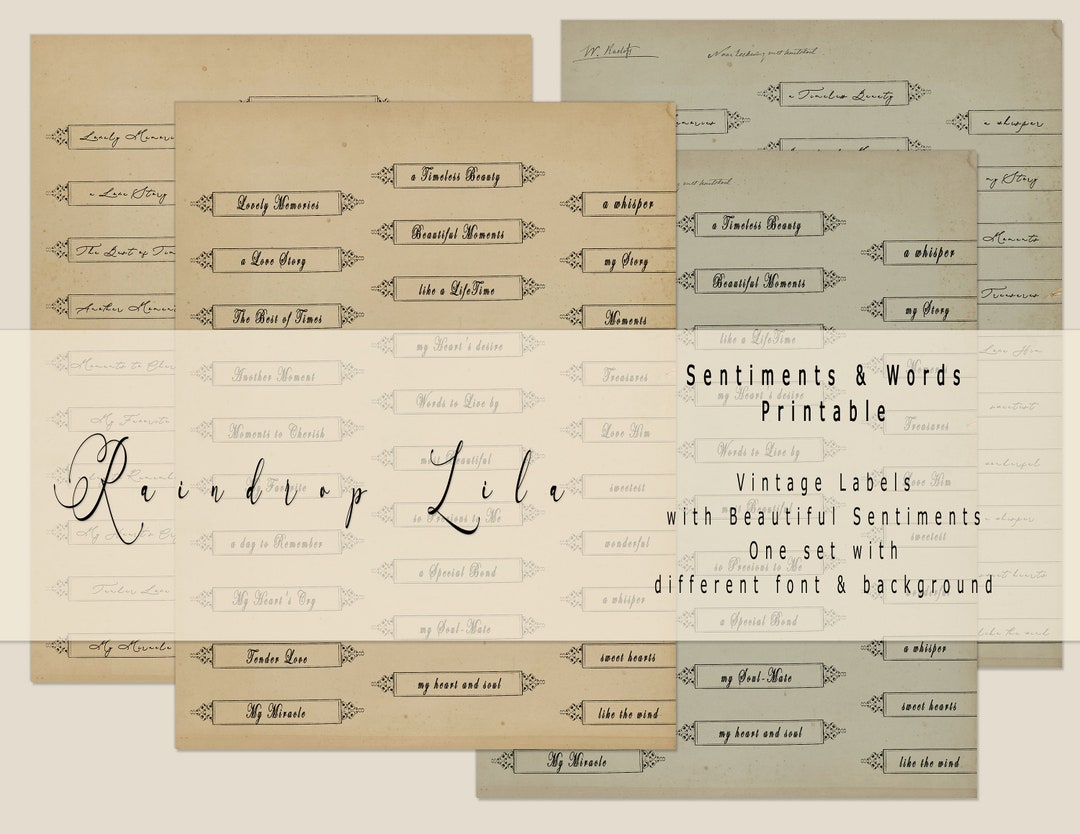 Lovely
a Love Story
The Best of
Another
My
Tender Love
My Miracle
a Timeless Beauty
Lovely Memories
a whisper
Beautiful Moments
a Love Story
my Story
like a LifeTime
The Best of Times
Moments
my Heart's desire
Another Moment
Treasures
Words to Live by
Moments to Cherish
Love Him
most Beautiful
My Favorite
sweetest
so Precious to Me
a day to Remember
wonderful
a Special Bond
My Heart's Cry
a whisper
my Soul-Mate
Tender Love
sweet hearts
my heart and soul
My Miracle
like the wind
a Timeless Beauty
a whisper
my Story
Moments
Treasures
Love Him
a Timeless Beauty
a whisper
Beautiful Moments
my Story
like a LifeTime
my Heart's desire
Treasures
Words to Live by
Love Him
sweetest
so Precious to Me
a Special Bond
a whisper
my Soul-Mate
sweet hearts
my heart and soul
My Miracle
like the wind
Raindrop Lila
Sentiments & Words
Printable
Vintage Labels
with Beautiful Sentiments
One set with
different font & background